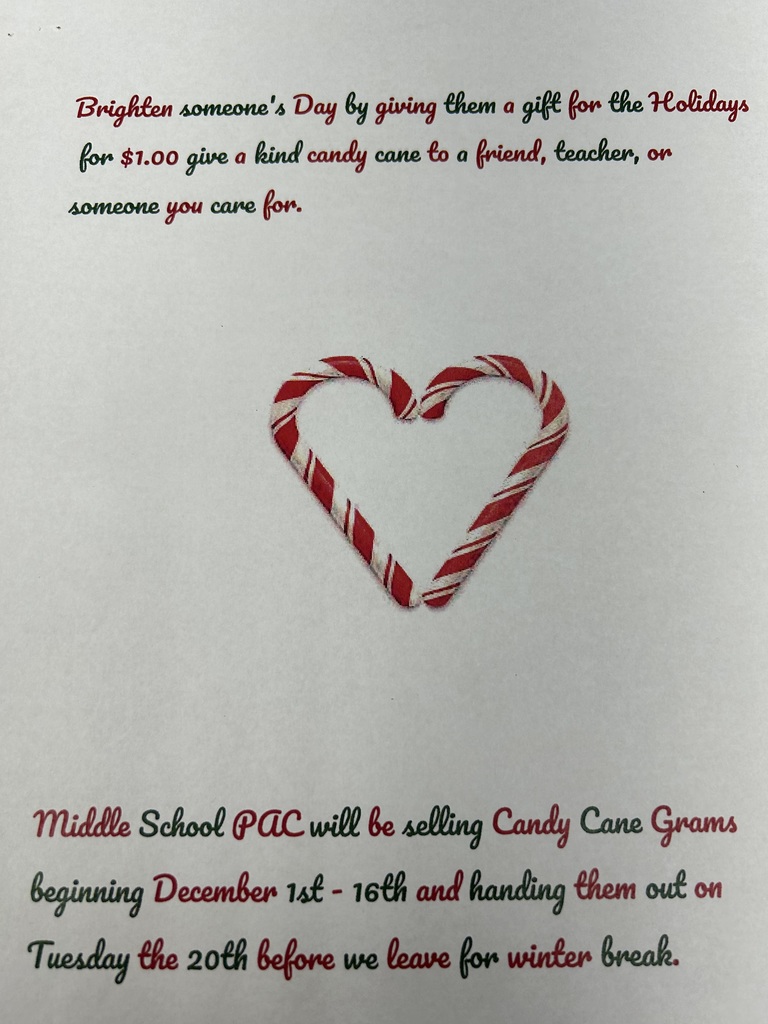 Brighten someone's Day by giving them a gift for the Holidays
for $1.00 give a kind candy cane to a friend, teacher, or
someone you care for.
Middle School PAC will be selling Candy Cane Grams
beginning December 1st - 16th and handing them out on
Tuesday the 20th before we leave for winter break.